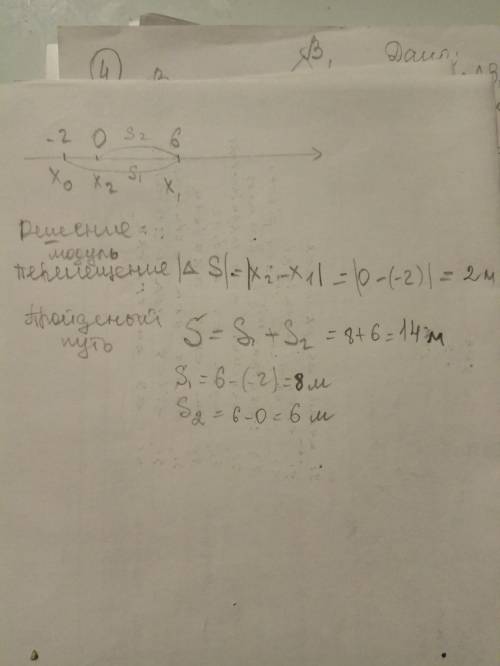 ④ В₁ Дано:
-2 0 S₂ 6
X₀ X₂ S₁ X₁
Решение:
модуль
перемещение |Δ S| = |X₂ - X₁| = |0 - (-2)| = 2 м
Пройденый
путь S = S₁ + S₂ = 8 + 6 = 14 м
S₁ = 6 - (-2) = 8 м
S₂ = 6 - 0 = 6 м